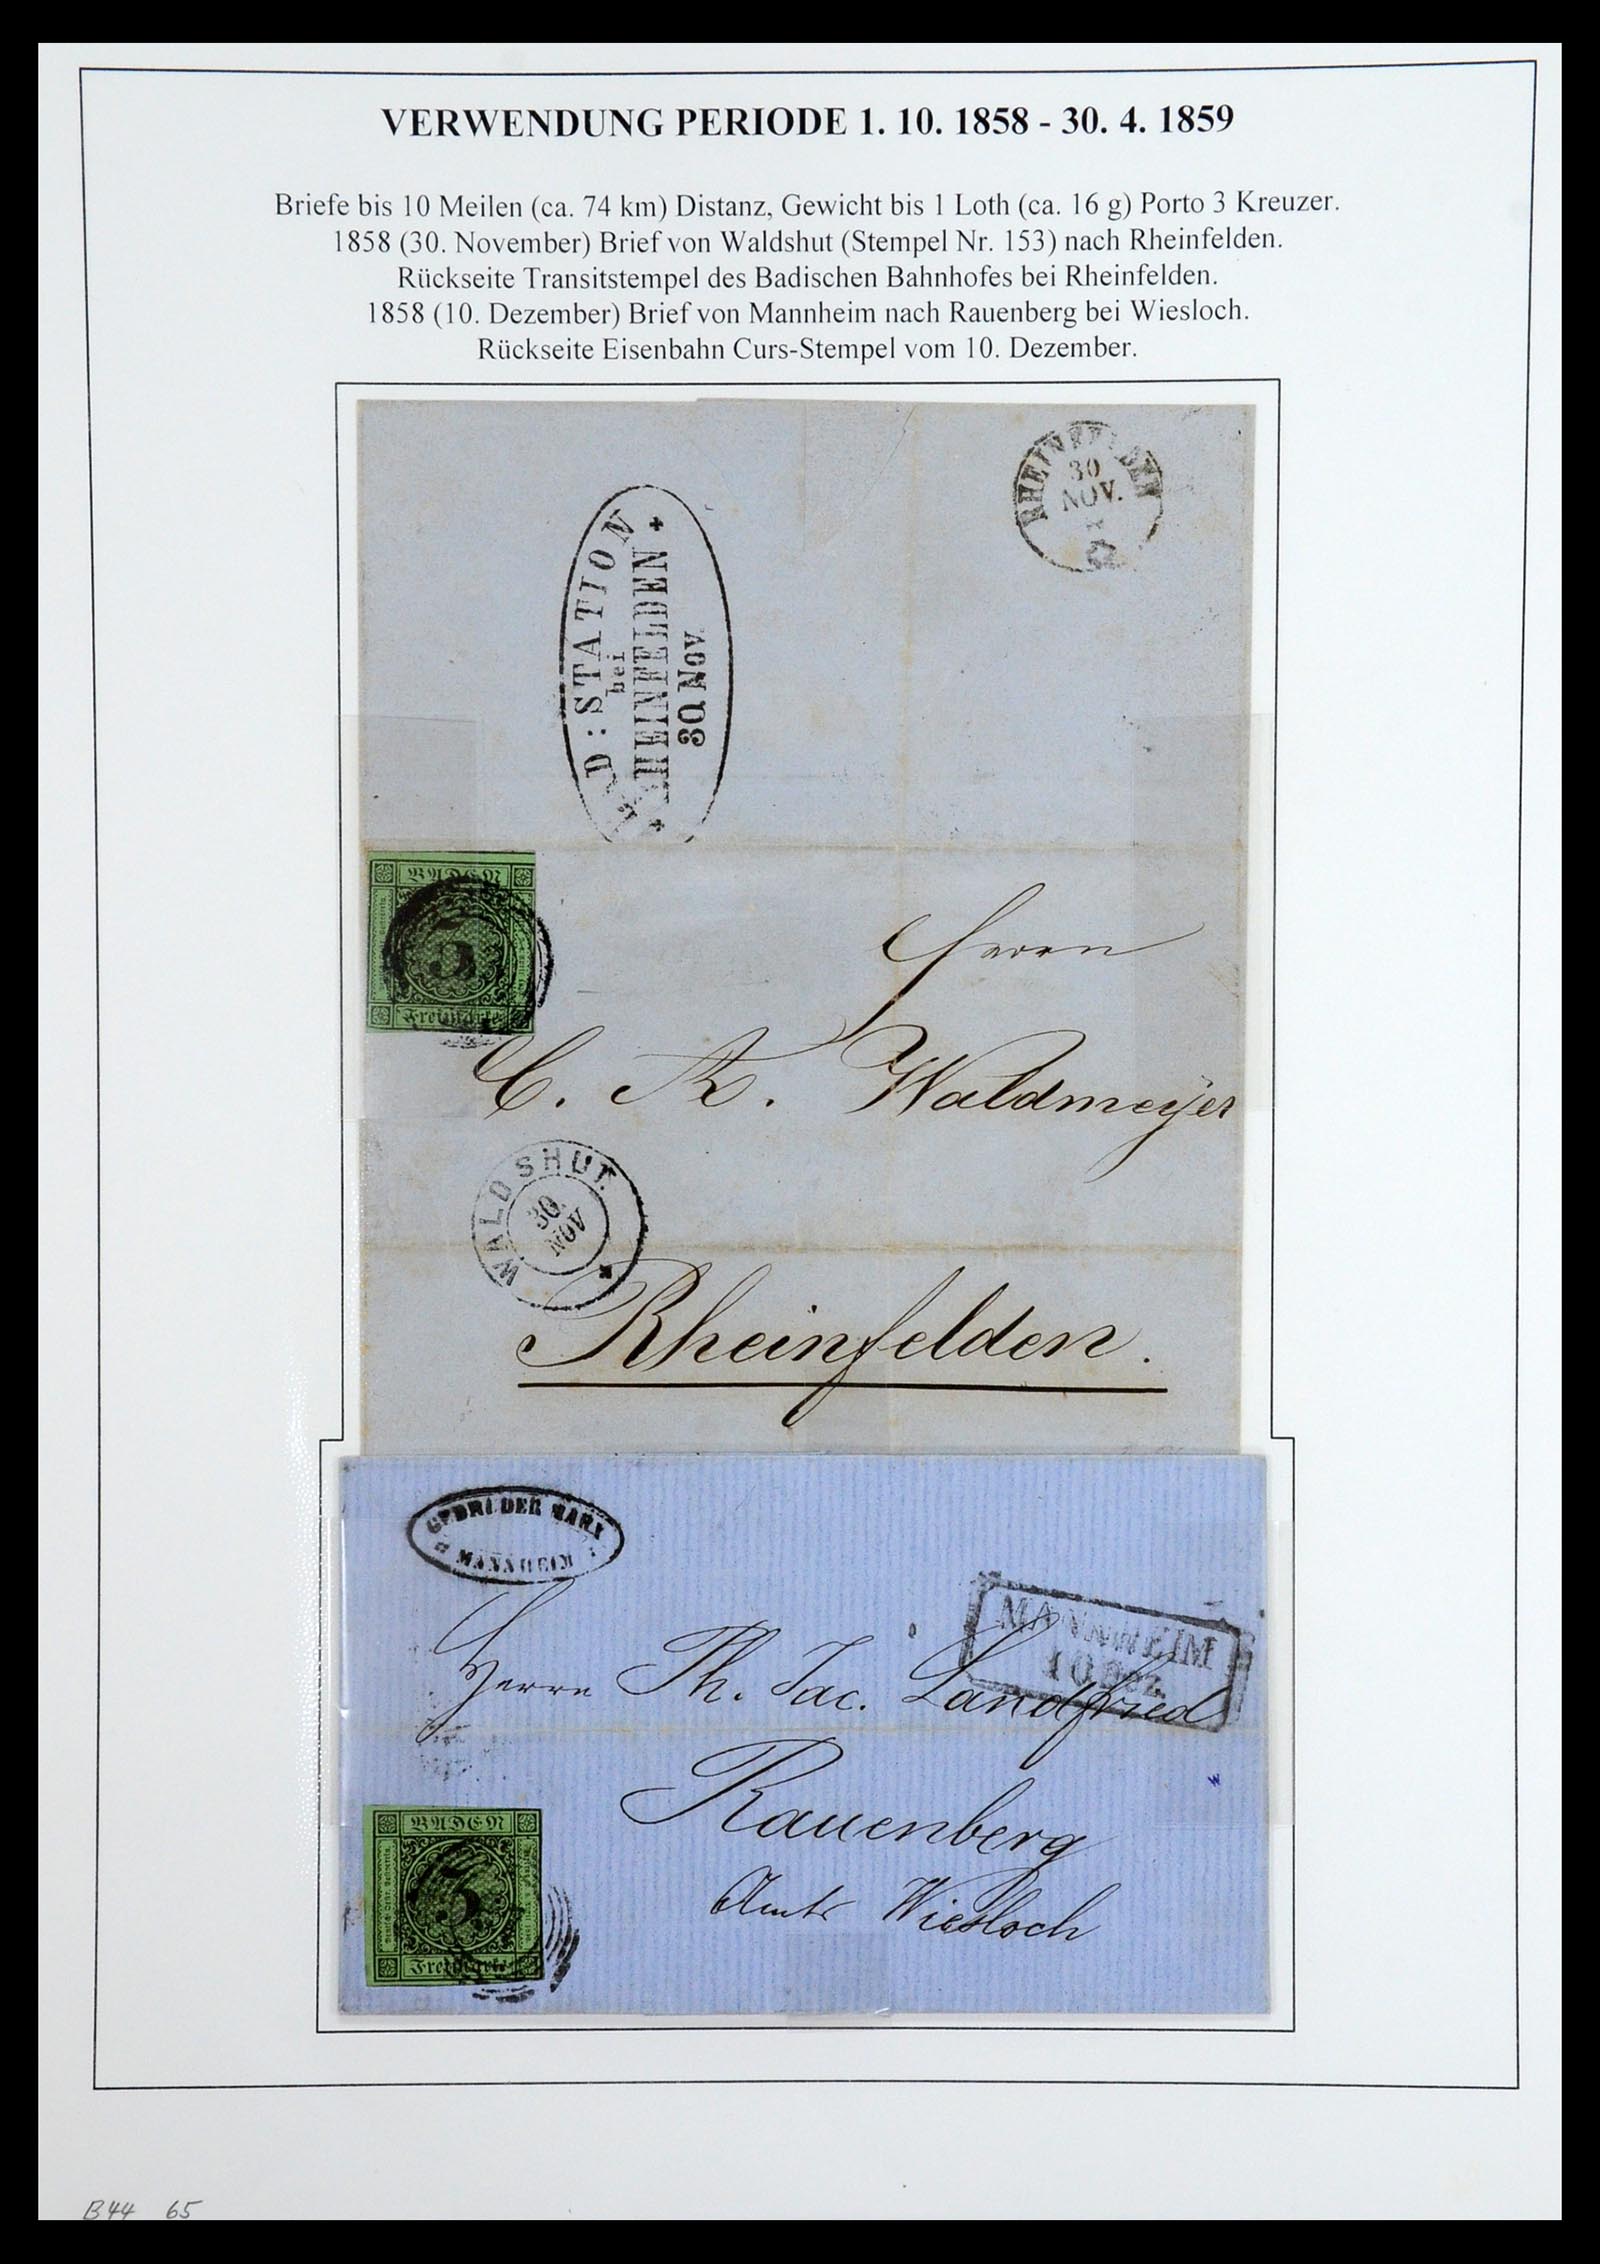 VERWENDUNG PERIODE 1. 10. 1858 - 30. 4. 1859
Briefe bis 10 Meilen (ca. 74 km) Distanz, Gewicht bis 1 Loth (ca. 16 g) Porto 3 Kreuzer.
1858 (30. November) Brief von Waldshut (Stempel Nr. 153) nach Rheinfelden.
Rückseite Transitstempel des Badischen Bahnhofes bei Rheinfelden.
1858 (10. Dezember) Brief von Mannheim nach Rauenberg bei Wiesloch.
Rückseite Eisenbahn Curs-Stempel vom 10. Dezember.
RHEINFELDEN
30
NOV.
BAD: STATION
bei
RHEINFELDEN
30 Nov
BADEN
3
Freimarke
Herrn
C. A. Waldmeyer
WALDSHUT.
30.
NOV
Rheinfelden.
GEBRÜDER MARX
MANNHEIM
MANNHEIM
10 Dez.
Herrn Ph. Jac. Landfried
Rauenberg
Amts Wiesloch
BADEN
3
Freimarke
B44 65